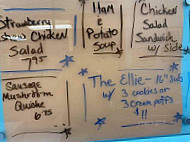 Strawberry
Chicken
Salad
7.95
Ham
&
Potato
Soup
Chicken
Salad
Sandwich
w/ Side
Sausage
Mushroom
Quiche
6.75
The Ellie- 16" Sub
w/ 3 cookies or
3 cream puffs
$11